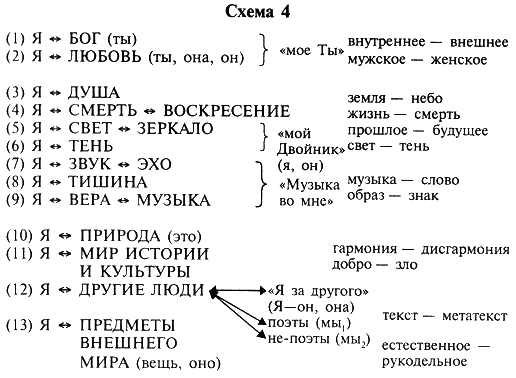 Схема 4
(1) Я ↔ БОГ (ты)
(2) Я ↔ ЛЮБОВЬ (ты, она, он)
«мое Ты»
внутреннее — внешнее
мужское — женское
(3) Я ↔ ДУША
(4) Я ↔ СМЕРТЬ ↔ ВОСКРЕСЕНИЕ
(5) Я ↔ СВЕТ ↔ ЗЕРКАЛО
(6) Я ↔ ТЕНЬ
(7) Я ↔ ЗВУК ↔ ЭХО
(8) Я ↔ ТИШИНА
(9) Я ↔ ВЕРА ↔ МУЗЫКА
«мой
Двойник»
(я, он)
«Музыка
во мне»
земля — небо
жизнь — смерть
прошлое — будущее
свет — тень
музыка — слово
образ — знак
(10) Я ↔ ПРИРОДА (это)
(11) Я ↔ МИР ИСТОРИИ
И КУЛЬТУРЫ
(12) Я ↔ ДРУГИЕ ЛЮДИ
(13) Я ↔ ПРЕДМЕТЫ
ВНЕШНЕГО
МИРА (вещь, оно)
«Я за другого»
(Я—он, она)
поэты (мы₁)
не-поэты (мы₂)
гармония — дисгармония
добро — зло
текст — метатекст
естественное —
рукодельное